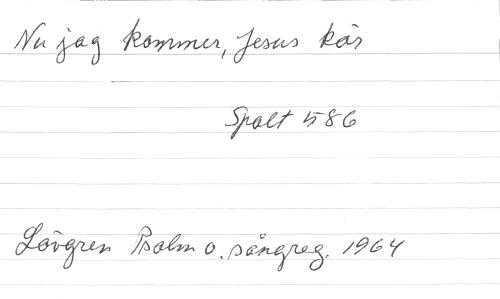 Nu jag kommer, Jesus kär
Spalt 586
Lövgren Psalm o. sångreg. 1964